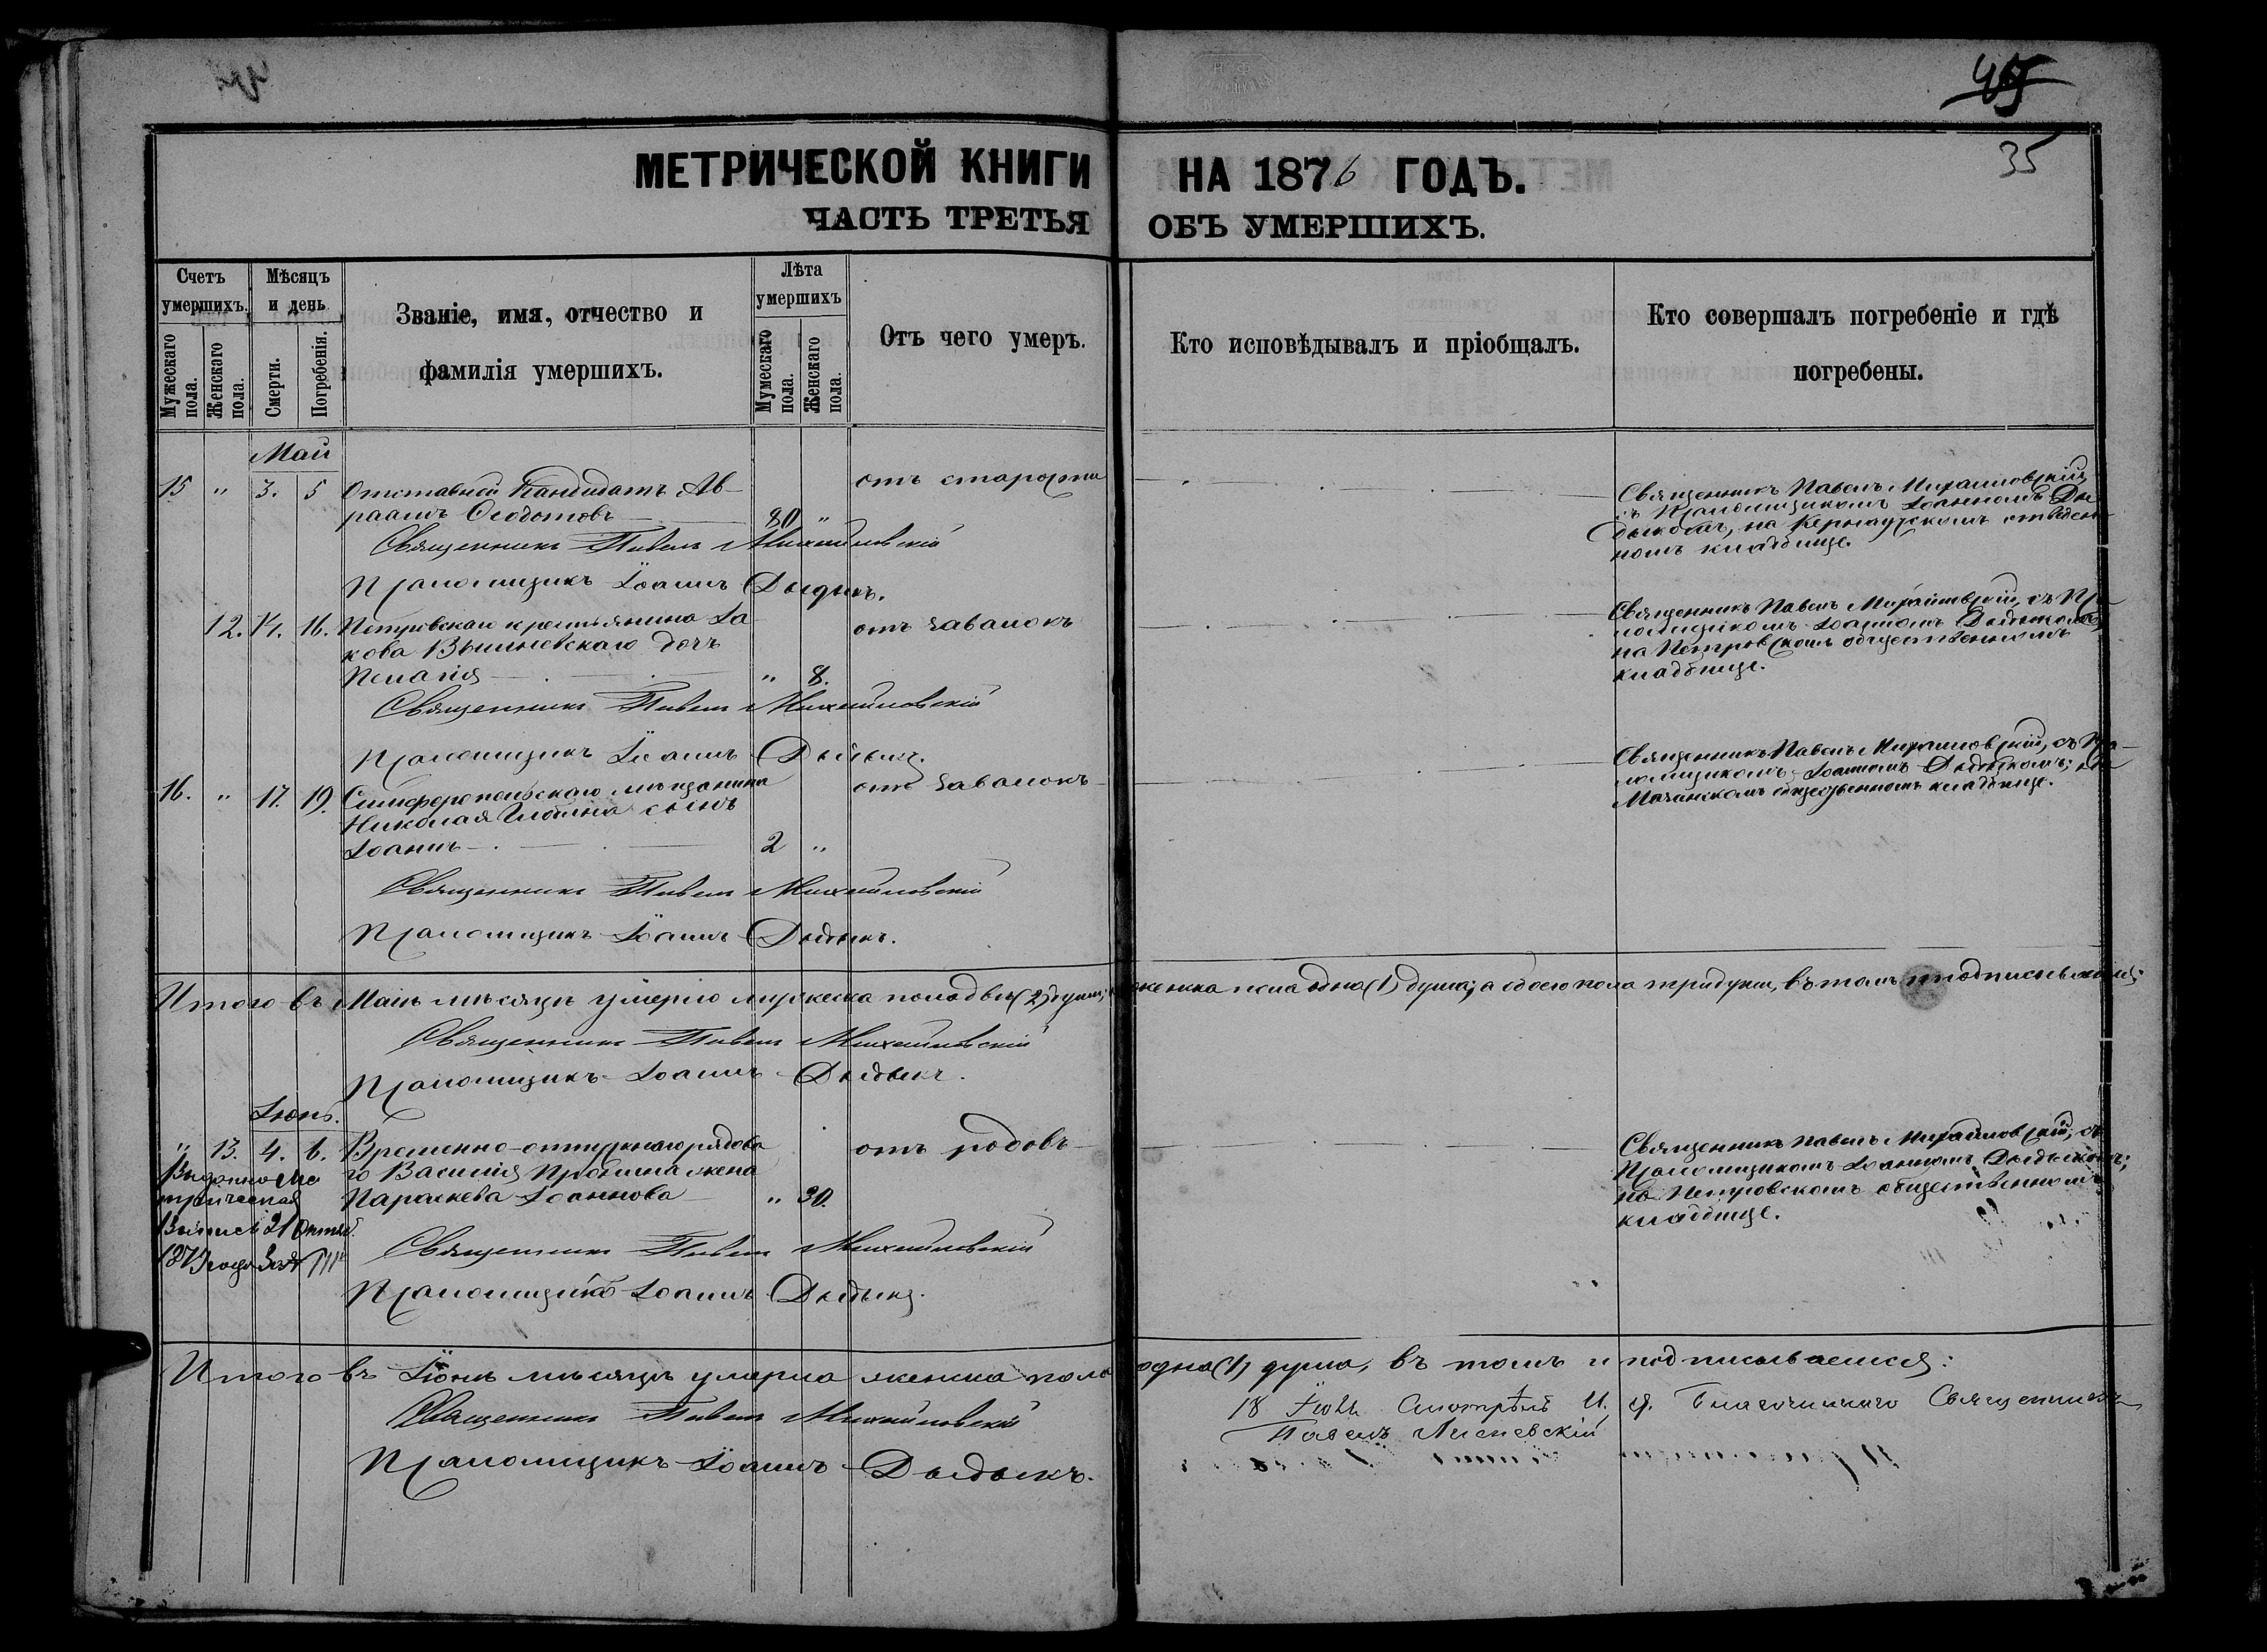 45
35
МЕТРИЧЕСКОЙ КНИГИ НА 1876 ГОДЪ.
ЧАСТЬ ТРЕТЬЯ ОБЪ УМЕРШИХЪ.
Счетъ умершихъ.
Мужескаго пола.
Женскаго пола.
Мѣсяцъ и день
Смерти.
Погребенія.
Званіе, имя, отчество и
фамилія умершихъ.
Лѣта умершихъ
Мужескаго пола.
Женскаго пола.
Отъ чего умеръ.
Кто исповѣдывалъ и пріобщалъ.
Кто совершалъ погребеніе и гдѣ
погребены.
Май
15 " 3. 5 Отставной Кандидатъ Ав-
раамъ Ѳеодотовъ 80 "
отъ старости
Священникъ Павелъ Михайловскій,
съ Псаломщикомъ Іоанномъ Ды-
дыкомъ, на
номъ кладбище.
Священникъ Павелъ Михайловскій
Псаломщикъ Іоаннъ Дыдыкъ.
12. 14. 16. Петровскаго крестьянина Іа
кова Вышневскаго дочь
Пелагія " 8.
отъ завалокъ
Священникъ Павелъ Михайловскій, съ Пса-
ломщикомъ Іоанномъ Дыдыкомъ,
на Петровскомъ общественномъ
кладбище.
Священникъ Павелъ Михайловскій
Псаломщикъ Іоаннъ Дыдыкъ.
16. " 17. 19. Симферопольскаго мѣщанина
Николая сынъ
Іоаннъ 2 "
отъ завалокъ
Священникъ Павелъ Михайловскій, съ Пса-
ломщикомъ Іоанномъ Дыдыкомъ; на
общественномъ кладбище.
Священникъ Павелъ Михайловскій
Псаломщикъ Іоаннъ Дыдыкъ.
Итого въ Маѣ мѣсяцѣ умерло мужеска пола двѣ (2) души; женска пола одна (1) душа; а обоего пола три души, въ томъ и подписываемся:
Священникъ Павелъ Михайловскій
Псаломщикъ Іоаннъ Дыдыкъ.
Іюнь.
" 13. 4. 6. Временно-отпускнаго рядова
го Василія Пронина жена
Параскева Іоаннова " 30.
отъ родовъ
Священникъ Павелъ Михайловскій, съ
Псаломщикомъ Іоанномъ Дыдыкомъ;
на Петровскомъ общественномъ
кладбище.
Выдано Ме
трическая
выпись 21 Октяб.
года за №
Священникъ Павелъ Михайловскій
Псаломщикъ Іоаннъ Дыдыкъ.
Итого въ Іюнѣ мѣсяцѣ умерла женска пола одна (1) душа, въ томъ и подписываемся:
Священникъ Павелъ Михайловскій
Псаломщикъ Іоаннъ Дыдыкъ.
18 Іюля Смотрѣлъ И. д. Благочиннаго Священникъ
Павелъ